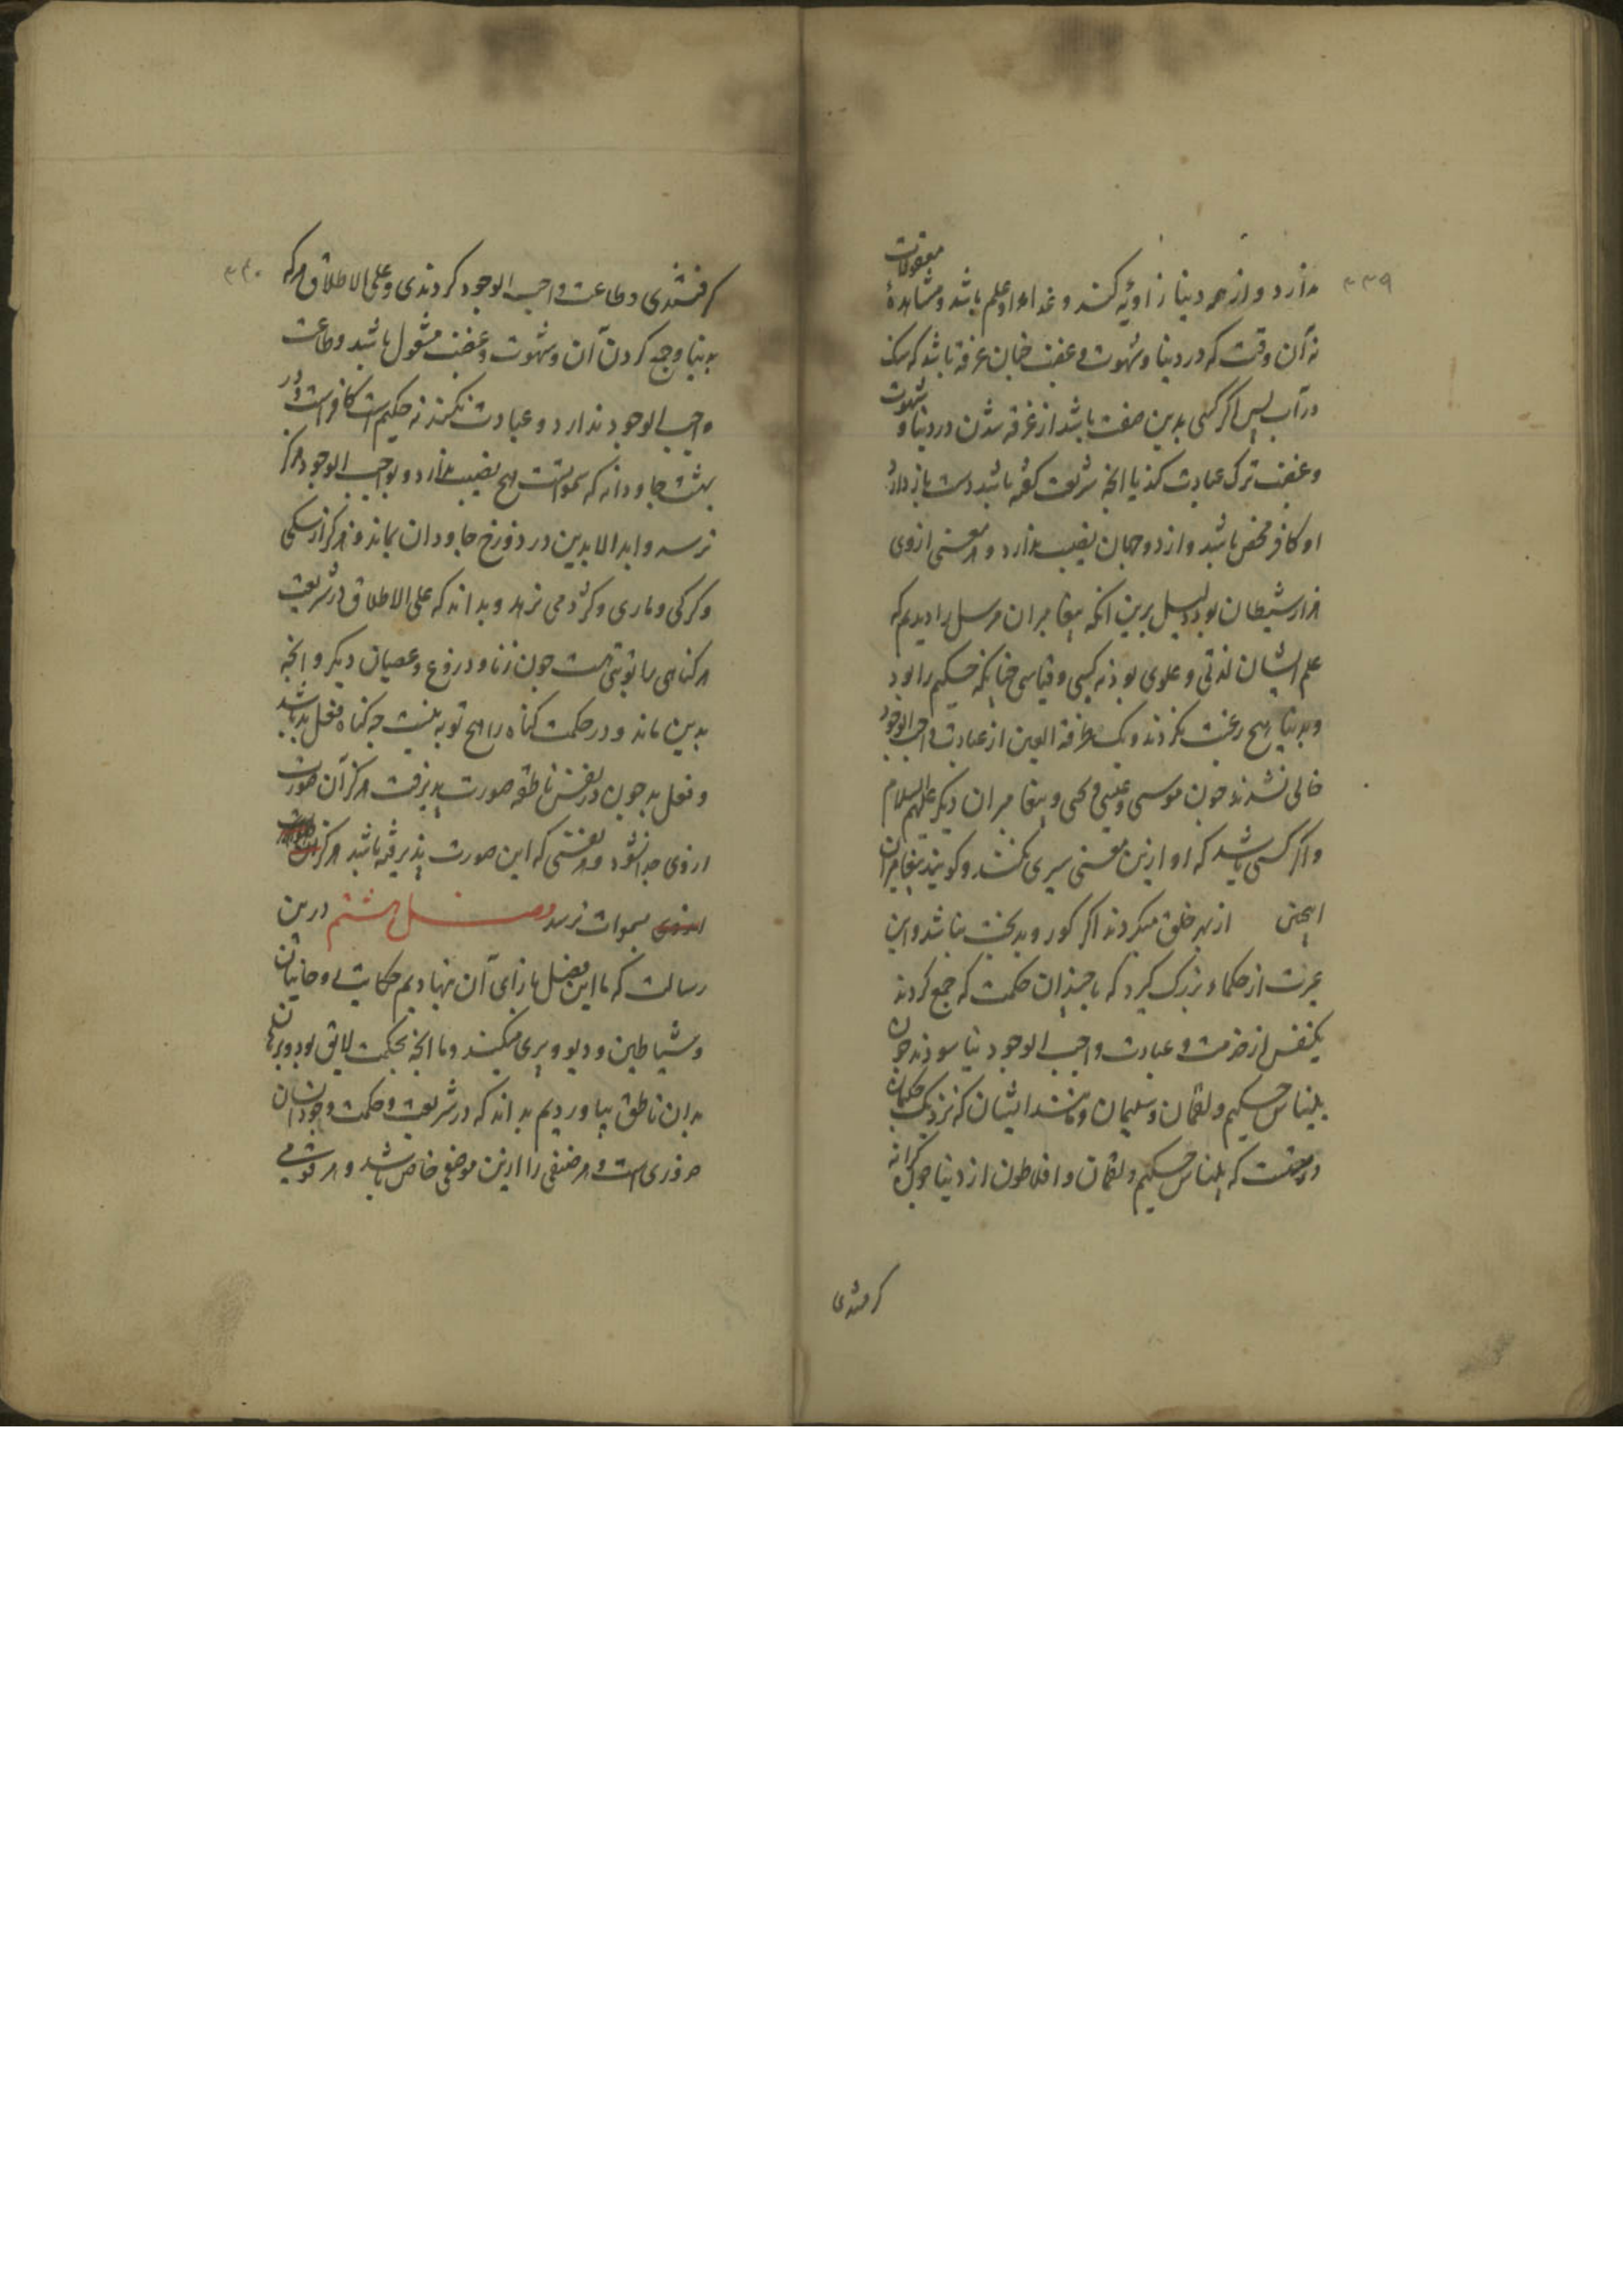 ۳۳۹
ندارد و از همه دنیا زاویهٔ کند و غذاء او علم باشد و مشاهدهٔ معقولات
نه آن وقت که در دنیا و شهوت و غضب چنان غرقه باشد که سنک
در آب پس اگر کسی بدین صفت باشد از غرقه شدن در دنیا و شهوت
و غضب ترک عبادت کند یا انچه شریعت گفته باشد دست باز دارد
او کافر محض باشد و از دو جهان نصیب ندارد و هر معنی ازوی
هزار شیطان بود دلیل برین آنکه پیغامبران مرسل را دیدیم که
علم ایشان لدنی و علوی بود نه کسبی و قیاسی چنانکه حکیم را بود
و بدنیا هیچ رغبت نکردند و یک طرفة العین از عبادت واجب الوجود
خالی نشدند چون موسی و عیسی و یحیی و پیغامبران دیگر علیهم السلام
و اگر کسی باشد که او ازین معنی سیری کند و گویند پیغامبران
این از بهر خلق میکردند اگر کور و بدبخت نباشد و این
عبرت از حکماء بزرگ گیرد که با چندان حکمت که جمع کردند
یکنفس از خدمت و عبادت واجب الوجود نیاسودند چون
بلیناس حکیم و لقمان و سلیمان و مانند ایشان که نزدیک حکیمان
درستست که بلیناس حکیم و لقمان و افلاطون از دنیا چون کرانه
گرفتندی
۳۴۰
گرفتندی و طاعت واجب الوجود کردندی و علی الاطلاق هر که
بدنیا و جمع کردن آن و شهوت و غضب مشغول باشد و طاعت
واجب الوجود ندارد و عبادت نکند نه حکیم است کافر است و در
بهشت جاودانه که سمواتست هیچ نصیب ندارد و بواجب الوجود هرگز
نرسد و ابد الابدین در دوزخ جاودان بماند و هرگز از سگی
و گرگی و ماری و کژدمی نرهد و بداند که علی الاطلاق در شریعت
هر گناهی را توبتی است چون زنا و دروغ و عصیان دیگر و انچه
بدین ماند و در حکمت گناه را هیچ توبه نیست چه گناه فعل بد باشد
و فعل بد چون در نفس ناطقه صورت پذیرفت هرگز آن صورت
ازوی جدا نشود و هر نفسی که این صورت پذیرفته باشد هرگز
بسموات نرسد فصل هشتم درین
رسالت که ما این فصل بازای آن نهادیم حکایت روحانیان
و شیاطین و دیو و پری میکند و ما انچه بحکمت لایق بود و برهان
بدان ناطق بیاوردیم بداند که در شریعت و حکمت وجود ایشان
ضروری است و هر صنفی را ازین موضعی خاص باشد و هر قومی